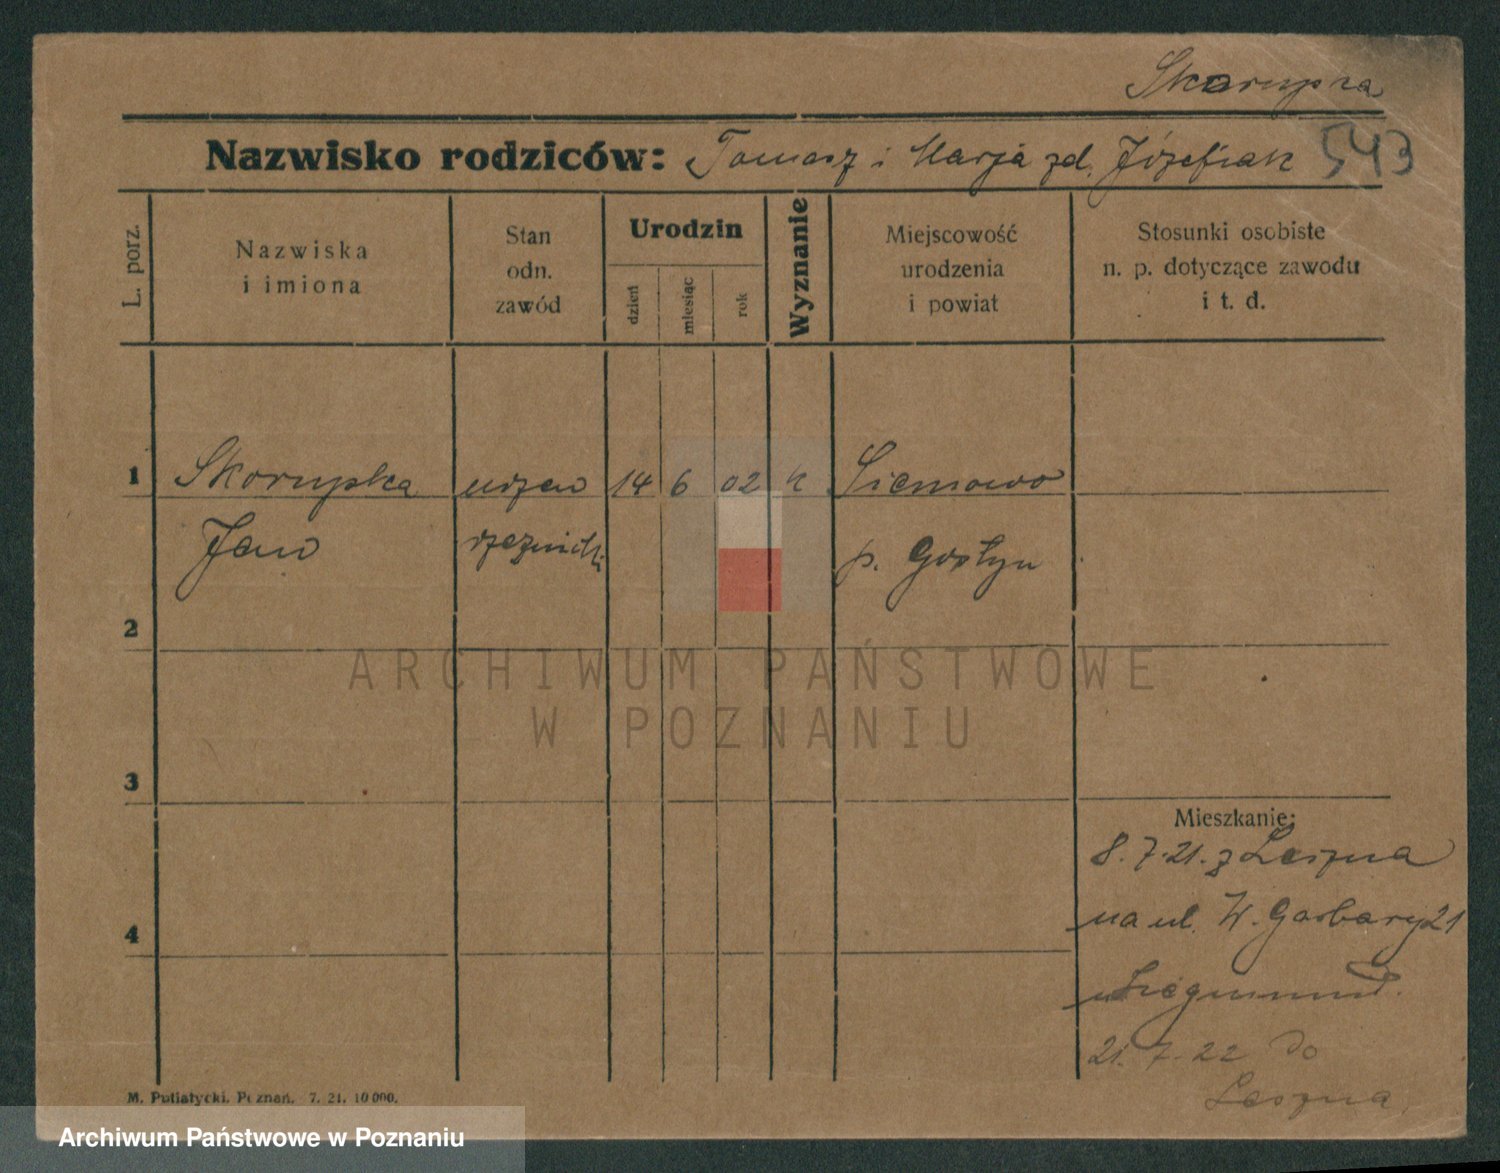 Skorupka
Nazwisko rodziców: Tomasz i Marja zd. Józefiak 543
L. porz.
Nazwiska
i imiona
Stan
odn.
zawód
Urodzin
dzień
miesiąc
rok
Wyznanie
Miejscowość
urodzenia
i powiat
Stosunki osobiste
n. p. dotyczące zawodu
i t. d.
1 Skorupka uczeń 14 6 02 k Siemowo
Jan rzeźnicki p. Gostyn
2
3
4
Mieszkanie:
8. 7. 21. z Leszna
na ul. W. Garbary 21
u
21. 7. 22 do
Leszna
M. Putiatycki, Poznań. 7. 21. 10 000.
ARCHIWUM PAŃSTWOWE
W POZNANIU
Archiwum Państwowe w Poznaniu